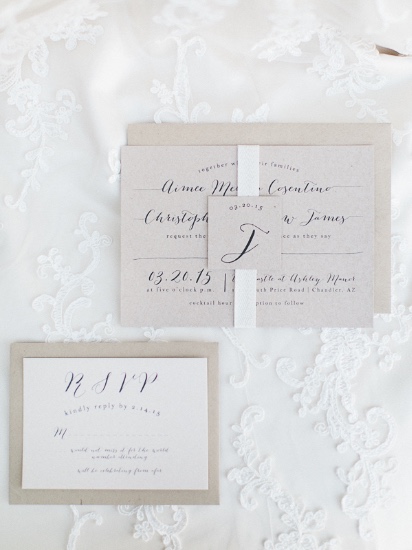 together with their families
Aimee Cosentino
Christoph w James
request the as they say
03.20.15
J
03.20.15
at five o'clock p.m.
castle at Ashley Manor
South Price Road | Chandler, AZ
cocktail hour to follow
RSVP
kindly reply by 2.14.15
M
would not miss it for the world
number attending
will be celebrating from afar